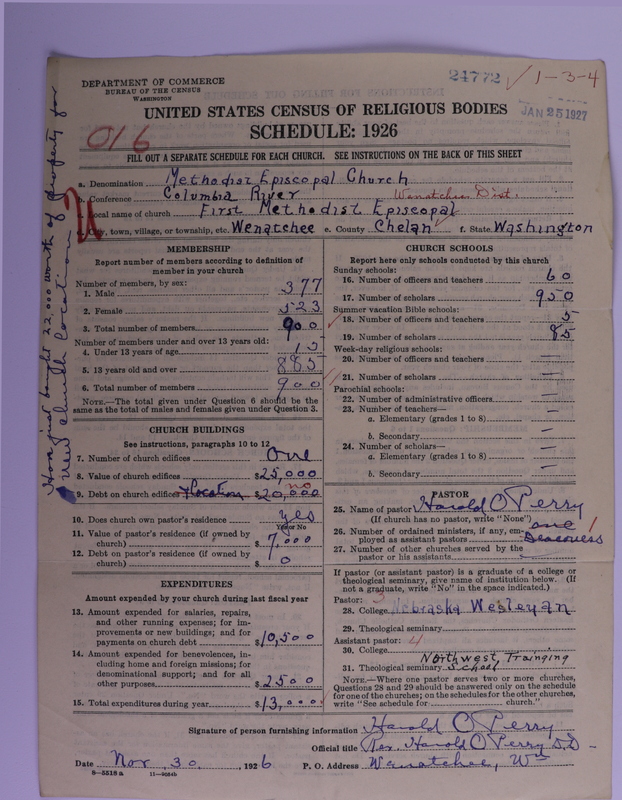 DEPARTMENT OF COMMERCE
BUREAU OF THE CENSUS
WASHINGTON
24772
1-3-4
JAN 25 1927
UNITED STATES CENSUS OF RELIGIOUS BODIES
SCHEDULE: 1926
016
FILL OUT A SEPARATE SCHEDULE FOR EACH CHURCH. SEE INSTRUCTIONS ON THE BACK OF THIS SHEET
a. Denomination Methodist Episcopal Church
b. Conference Columbia River Wenatchee Dist.
Local name of church First Methodist Episcopal
City, town, village, or township, etc. Wenatchee e. County Chelan f. State Washington
Have just bought 22,000 worth of property for
New church location
MEMBERSHIP
Report number of members according to definition of
member in your church
Number of members, by sex:
1. Male 377
2. Female 523
3. Total number of members 900
Number of members under and over 13 years old:
4. Under 13 years of age 15
5. 13 years old and over 885
6. Total number of members 900
NOTE.—The total given under Question 6 should be the
same as the total of males and females given under Question 3.
CHURCH BUILDINGS
See instructions, paragraphs 10 to 12
7. Number of church edifices One
8. Value of church edifices $25,000
9. Debt on church edifices + Location $20,000 no
10. Does church own pastor's residence yes
Yes or No
11. Value of pastor's residence (if owned by
church) $7,000
12. Debt on pastor's residence (if owned by
church) $ 0
EXPENDITURES
Amount expended by your church during last fiscal year
13. Amount expended for salaries, repairs,
and other running expenses; for im-
provements or new buildings; and for
payments on church debt $10,500
14. Amount expended for benevolences, in-
cluding home and foreign missions; for
denominational support; and for all
other purposes $2500
15. Total expenditures during year $13,000
CHURCH SCHOOLS
Report here only schools conducted by this church
Sunday schools:
16. Number of officers and teachers 60
17. Number of scholars 950
Summer vacation Bible schools:
18. Number of officers and teachers 5
19. Number of scholars 85
Week-day religious schools:
20. Number of officers and teachers —
21. Number of scholars —
Parochial schools:
22. Number of administrative officers —
23. Number of teachers—
a. Elementary (grades 1 to 8) —
b. Secondary —
24. Number of scholars—
a. Elementary (grades 1 to 8) —
b. Secondary —
PASTOR
25. Name of pastor Harold O Perry
(If church has no pastor, write "None")
26. Number of ordained ministers, if any, em-
ployed as assistant pastors one 1
27. Number of other churches served by the
pastor or his assistants
If pastor (or assistant pastor) is a graduate of a college or
theological seminary, give name of institution below. (If
not a graduate, write "No" in the space indicated.)
Pastor: 3
28. College Nebraska Wesleyan
29. Theological seminary
Assistant pastor: 4
30. College
31. Theological seminary Northwest Trainging
School
NOTE.—Where one pastor serves two or more churches,
Questions 28 and 29 should be answered only on the schedule
for one of the churches; on the schedules for the other churches,
write "See schedule for church."
Signature of person furnishing information Harold O Perry
Official title Rev. Harold O Perry D.D—
Date Nov 30, 1926 P. O. Address Wenatchee, Wn
8—5518a 11—9054b